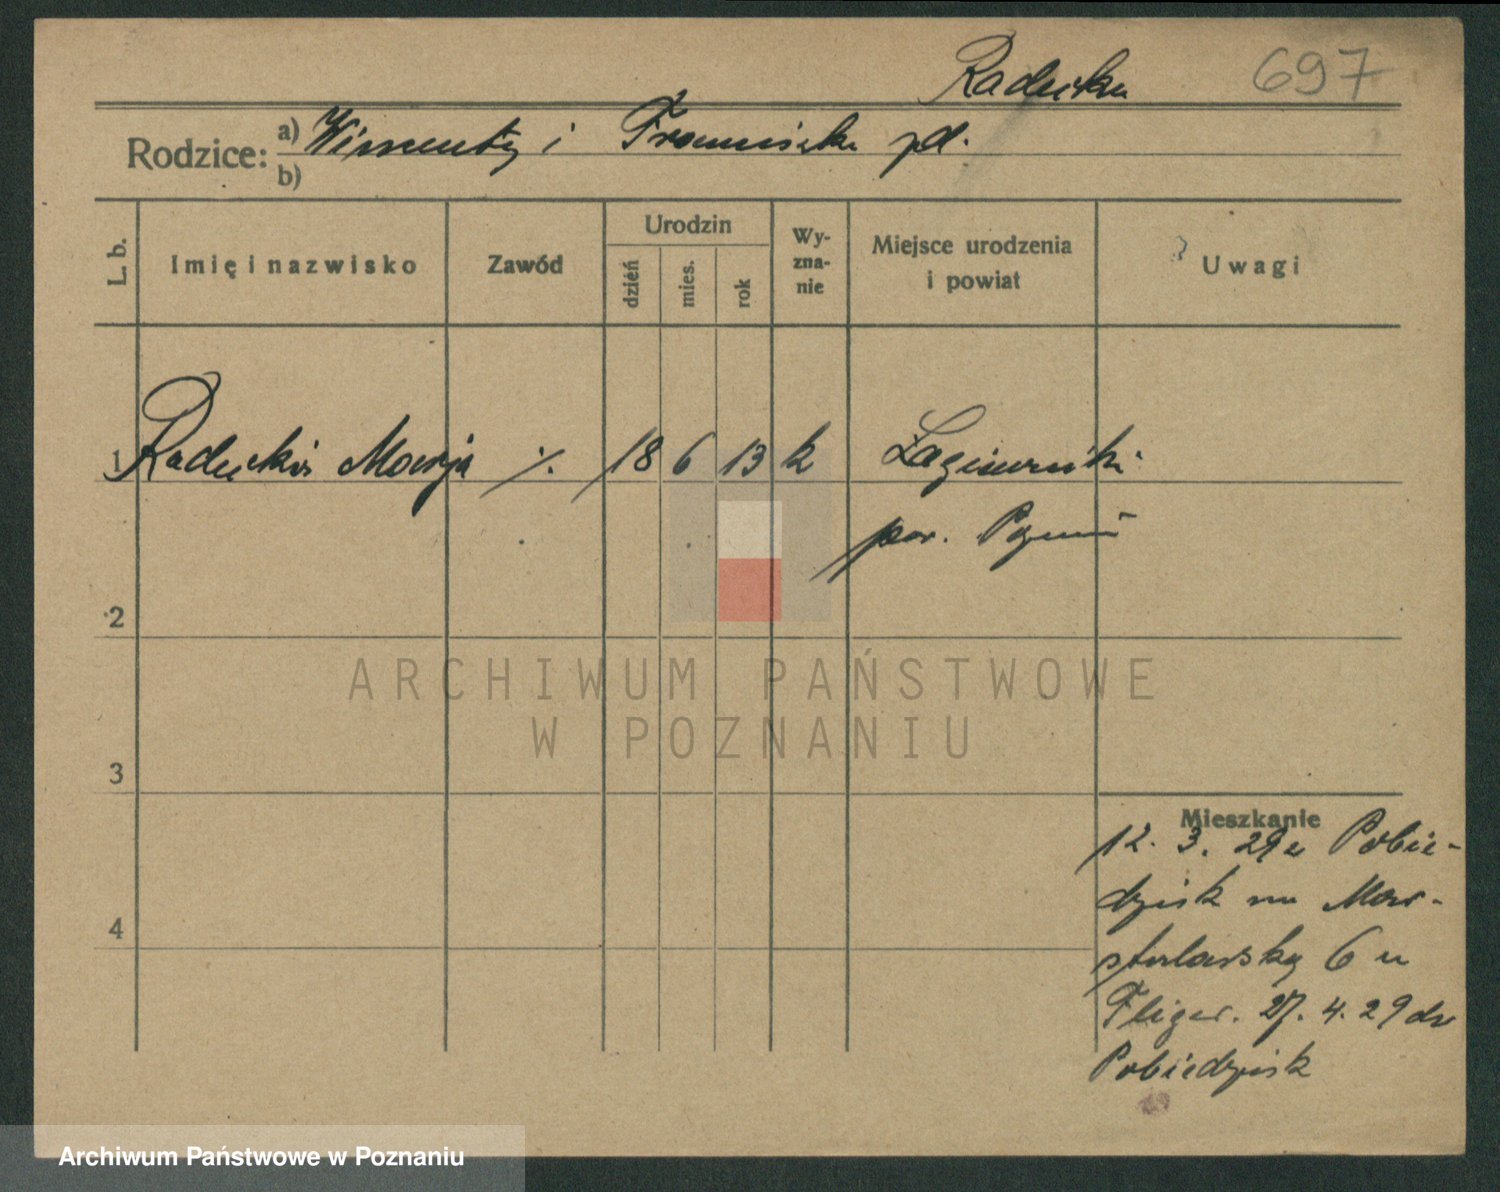 Radecka 697
Rodzice: a) Wincenty i Franciszka
b)
L. b.
Imię i nazwisko
Zawód
Urodzin
dzień
mies.
rok
Wy-
zna-
nie
Miejsce urodzenia
i powiat
Uwagi
1 Radecka Marja ·/. 18 6 13 k
pow. Poznań
2
3
4
Mieszkanie
12. 3. 29 z Pobie-
dzisk na
6 u
27. 4. 29 do
Pobiedzisk
ARCHIWUM PAŃSTWOWE
W POZNANIU
Archiwum Państwowe w Poznaniu